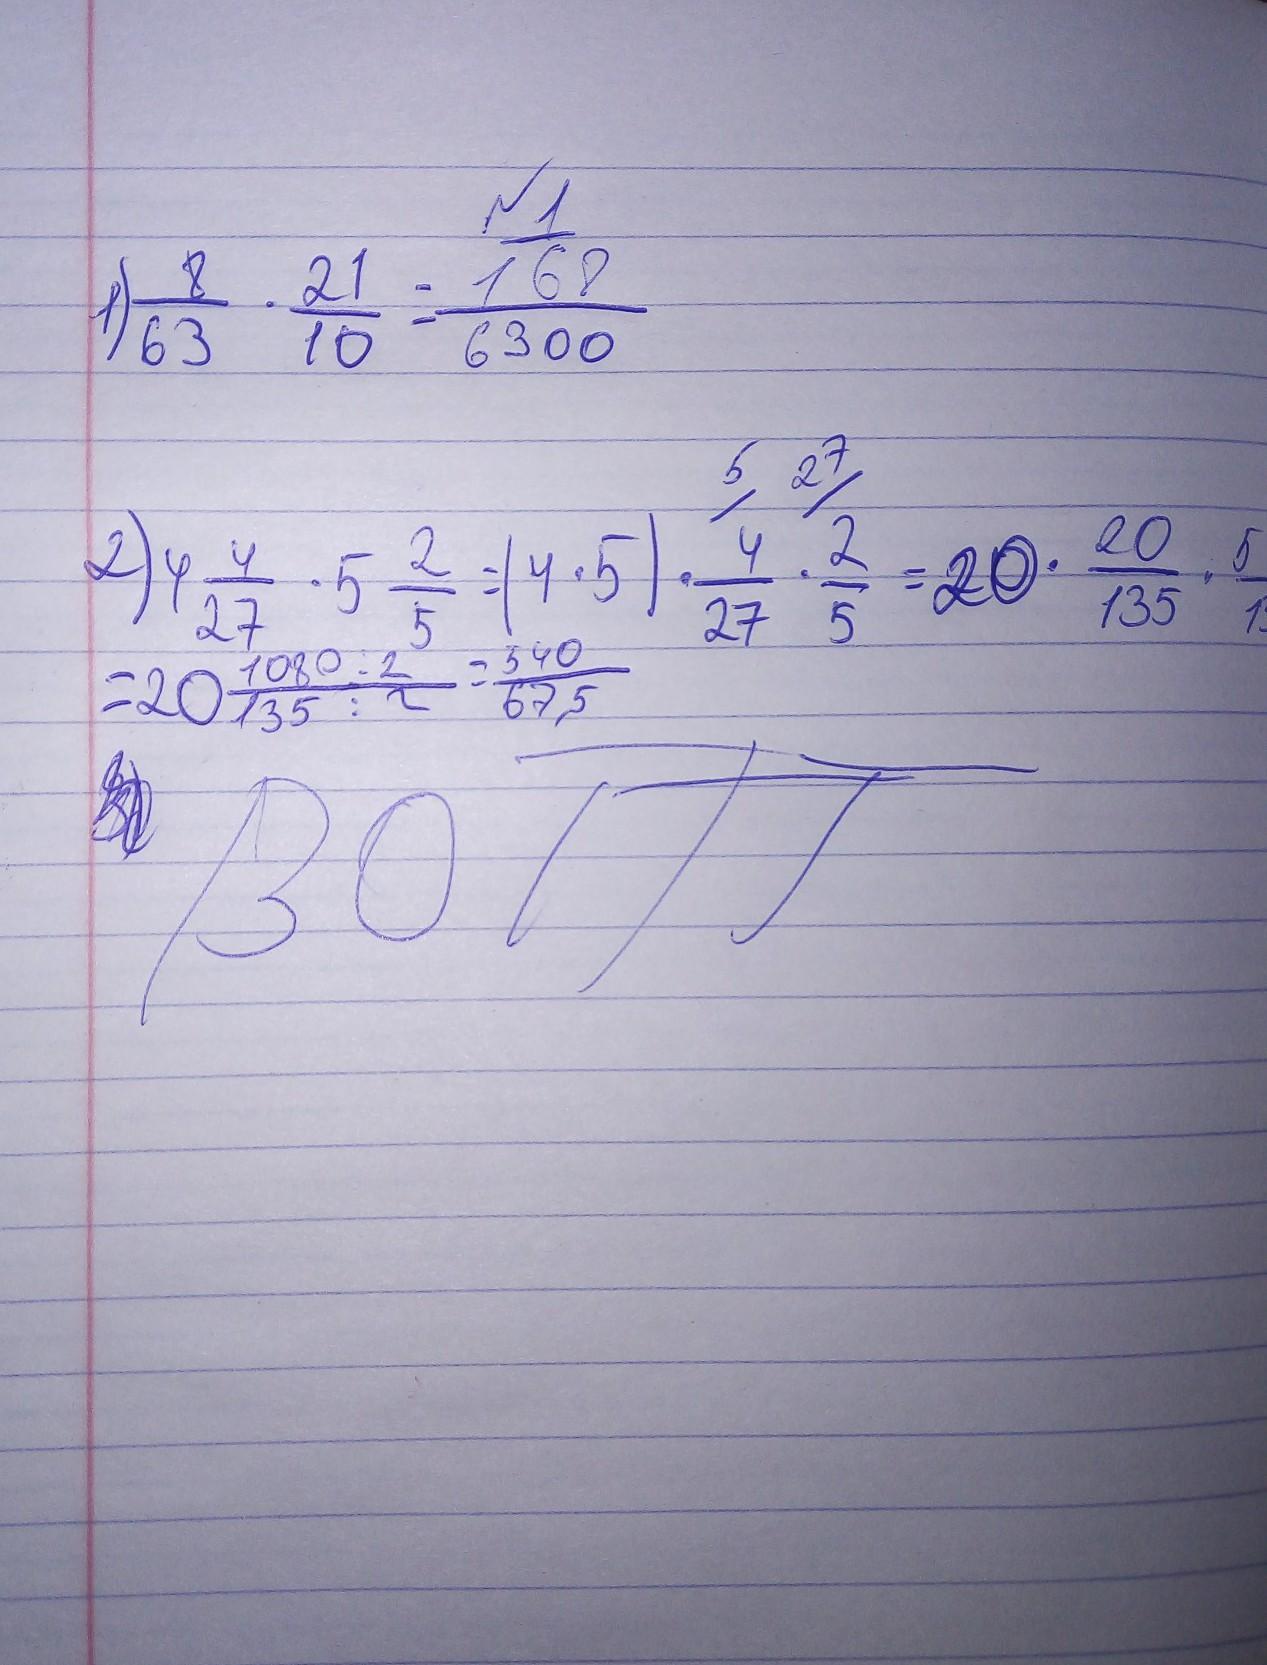 №1
1) 8/63 · 21/10 = 168/6300
2) 4 4/27 · 5 2/5 = (4 · 5) · 4/27 · 2/5 = 20 · 20/135 ·
5 27
= 20 1080 : 2/135 : 2 = 540/67,5